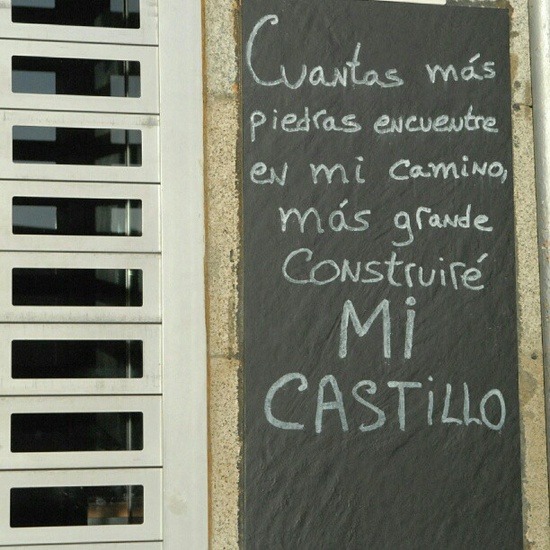 Cuantas más
piedras encuentre
en mi camino,
más grande
construiré
Mi
CASTiLLO